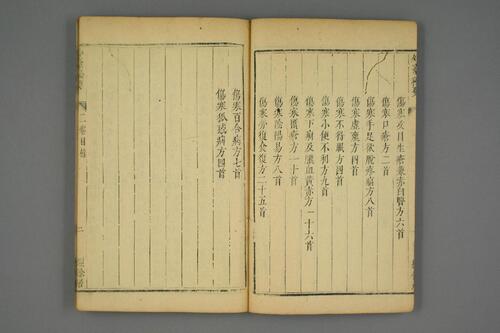 傷寒攻目生瘡兼赤白瞖方六首
傷寒口瘡方二首
傷寒手足欲脫疼痛方八首
傷寒虛羸方四首
傷寒不得眠方四首
傷寒小便不利方九首
傷寒下痢及膿血黃赤方一十六首
傷寒䘌瘡方一十首
傷寒陰陽易方八首
傷寒勞復食復方二十五首
傷寒百合病方七首
傷寒狐惑病方四首
二卷目錄
二